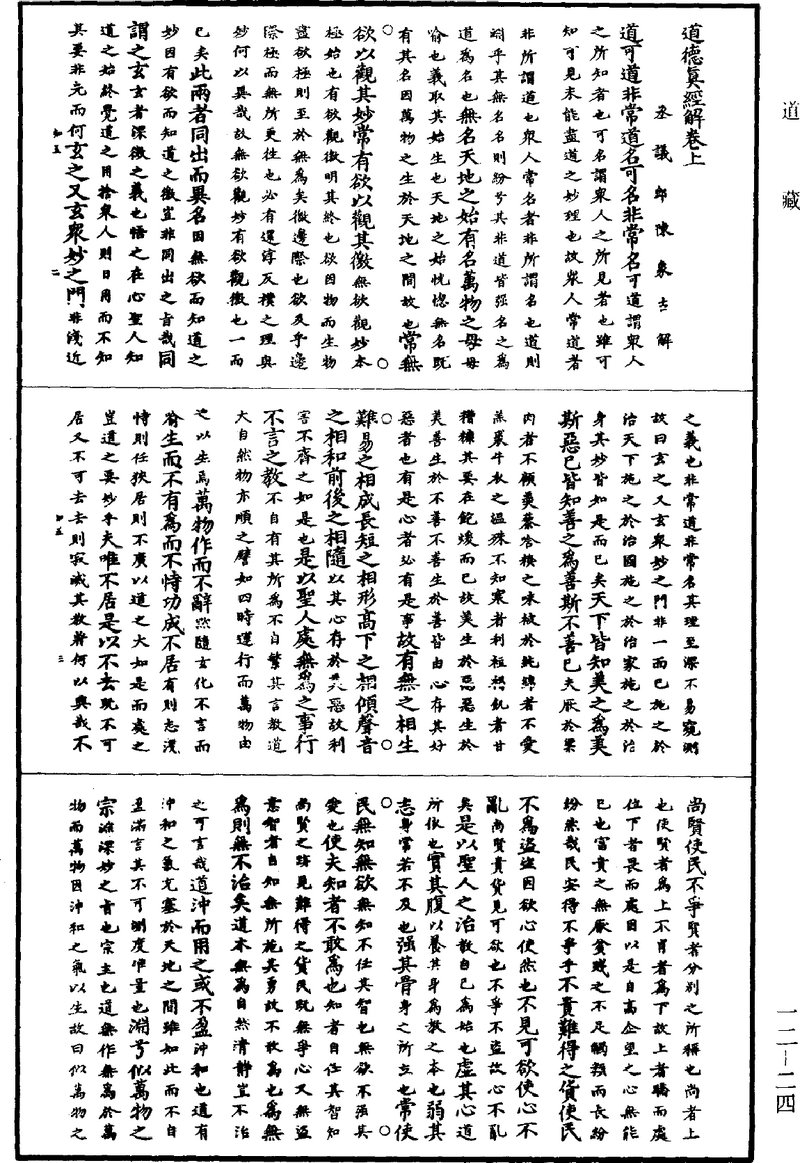 道藏
一二—二四
道德真經解卷上
丞議郎陳象古解
道可道非常道名可名非常名可道謂衆人
之所知者也可名謂衆人之所見者也雖可
知可見未能盡道之妙理也故衆人常道者
非所謂道也衆人常名者非所謂名也道則
淵乎其無名名則紛兮其非道皆強名之爲
道爲名也無名天地之始有名萬物之母母
喻也義取其始生也天地之始恍惚無名既
有其名因萬物之生於天地之間故也常無
欲以觀其妙常有欲以觀其徼無欲觀妙本
極始也有欲觀徼明其終也欲因物而生物
盡欲極則至於無爲矣徼邊際也欲及乎邊
際極而無所更往也必有還淳反樸之理與
妙何以異哉故無欲觀妙有欲觀徼也一而
已矣此兩者同出而異名因無欲而知道之
妙因有欲而知道之徼豈非同出之旨哉同
謂之玄玄者深微之義也悟之在心聖人知
道之始終覺道之用捨衆人則日用而不知
其要非元而何玄之又玄衆妙之門非淺近
之義也非常道非常名其理至深不易窺測
故曰玄之又玄衆妙之門非一而已施之於
治天下施之於治國施之於治家施之於治
身其妙皆如是而已矣天下皆知美之爲美
斯惡已皆知善之爲善斯不善已夫厭於粱
肉者不頓羮藜含糗之味被於純綿者不愛
羔裘牛衣之溫殊不知寒者利裋褐飢者甘
糟糠其要在飽煖而已故美生於惡惡生於
美善生於不善不善生於善皆由心存其好
惡者也有是心者必有是事故有無之相生
難易之相成長短之相形高下之相傾聲音
之相和前後之相隨以其心存於美惡故利
害不齊之如是也是以聖人處無爲之事行
不言之教不自有其所爲不自繁其言教道
大自然物亦順之譬如四時運行而萬物由
之以生焉萬物作而不辭然隨玄化不言而
喻生而不有爲而不恃功成不居有則志淺
恃則任狹居則不廣以道之大如是而處之
豈道之要妙乎夫唯不居是以不去既不可
居又不可去去則寂滅其教將何以興哉不
尚賢使民不爭賢者分別之所稱也尚者上
也使賢者爲上不肖者爲下故上者驕而處
位下者畏而處困以是自高企望之心無能
已也富貴之無厭貧賤之不足觸類而長紛
紛然哉民安得不爭乎不貴難得之貨使民
不爲盜盜因欲心使然也不見可欲使心不
亂尚賢貴貨見可欲也不爭不盜故心不亂
矣是以聖人之治教自己爲始也虛其心道
所依也實其腹以養其身爲教之本也弱其
志身常若不及也強其骨身之所立也常使
民無知無欲無知不任其智也無欲不滋其
愛也使夫知者不敢爲也知者自任其智知
尚賢之跡見難得之貨民既無爭心又無盜
意智者自知無所施其勇故不敢爲也爲無
爲則無不治矣道本無爲自然清靜豈不治
之可言哉道沖而用之或不盈沖和也道有
沖和之氣充塞於天地之間雖如此而不自
盈滿言其不可測度惟量也淵兮似萬物之
宗淵深妙之旨也宗主也道無作無爲於萬
物而萬物因沖和之氣以生故曰似萬物之
知五
二
知五
三